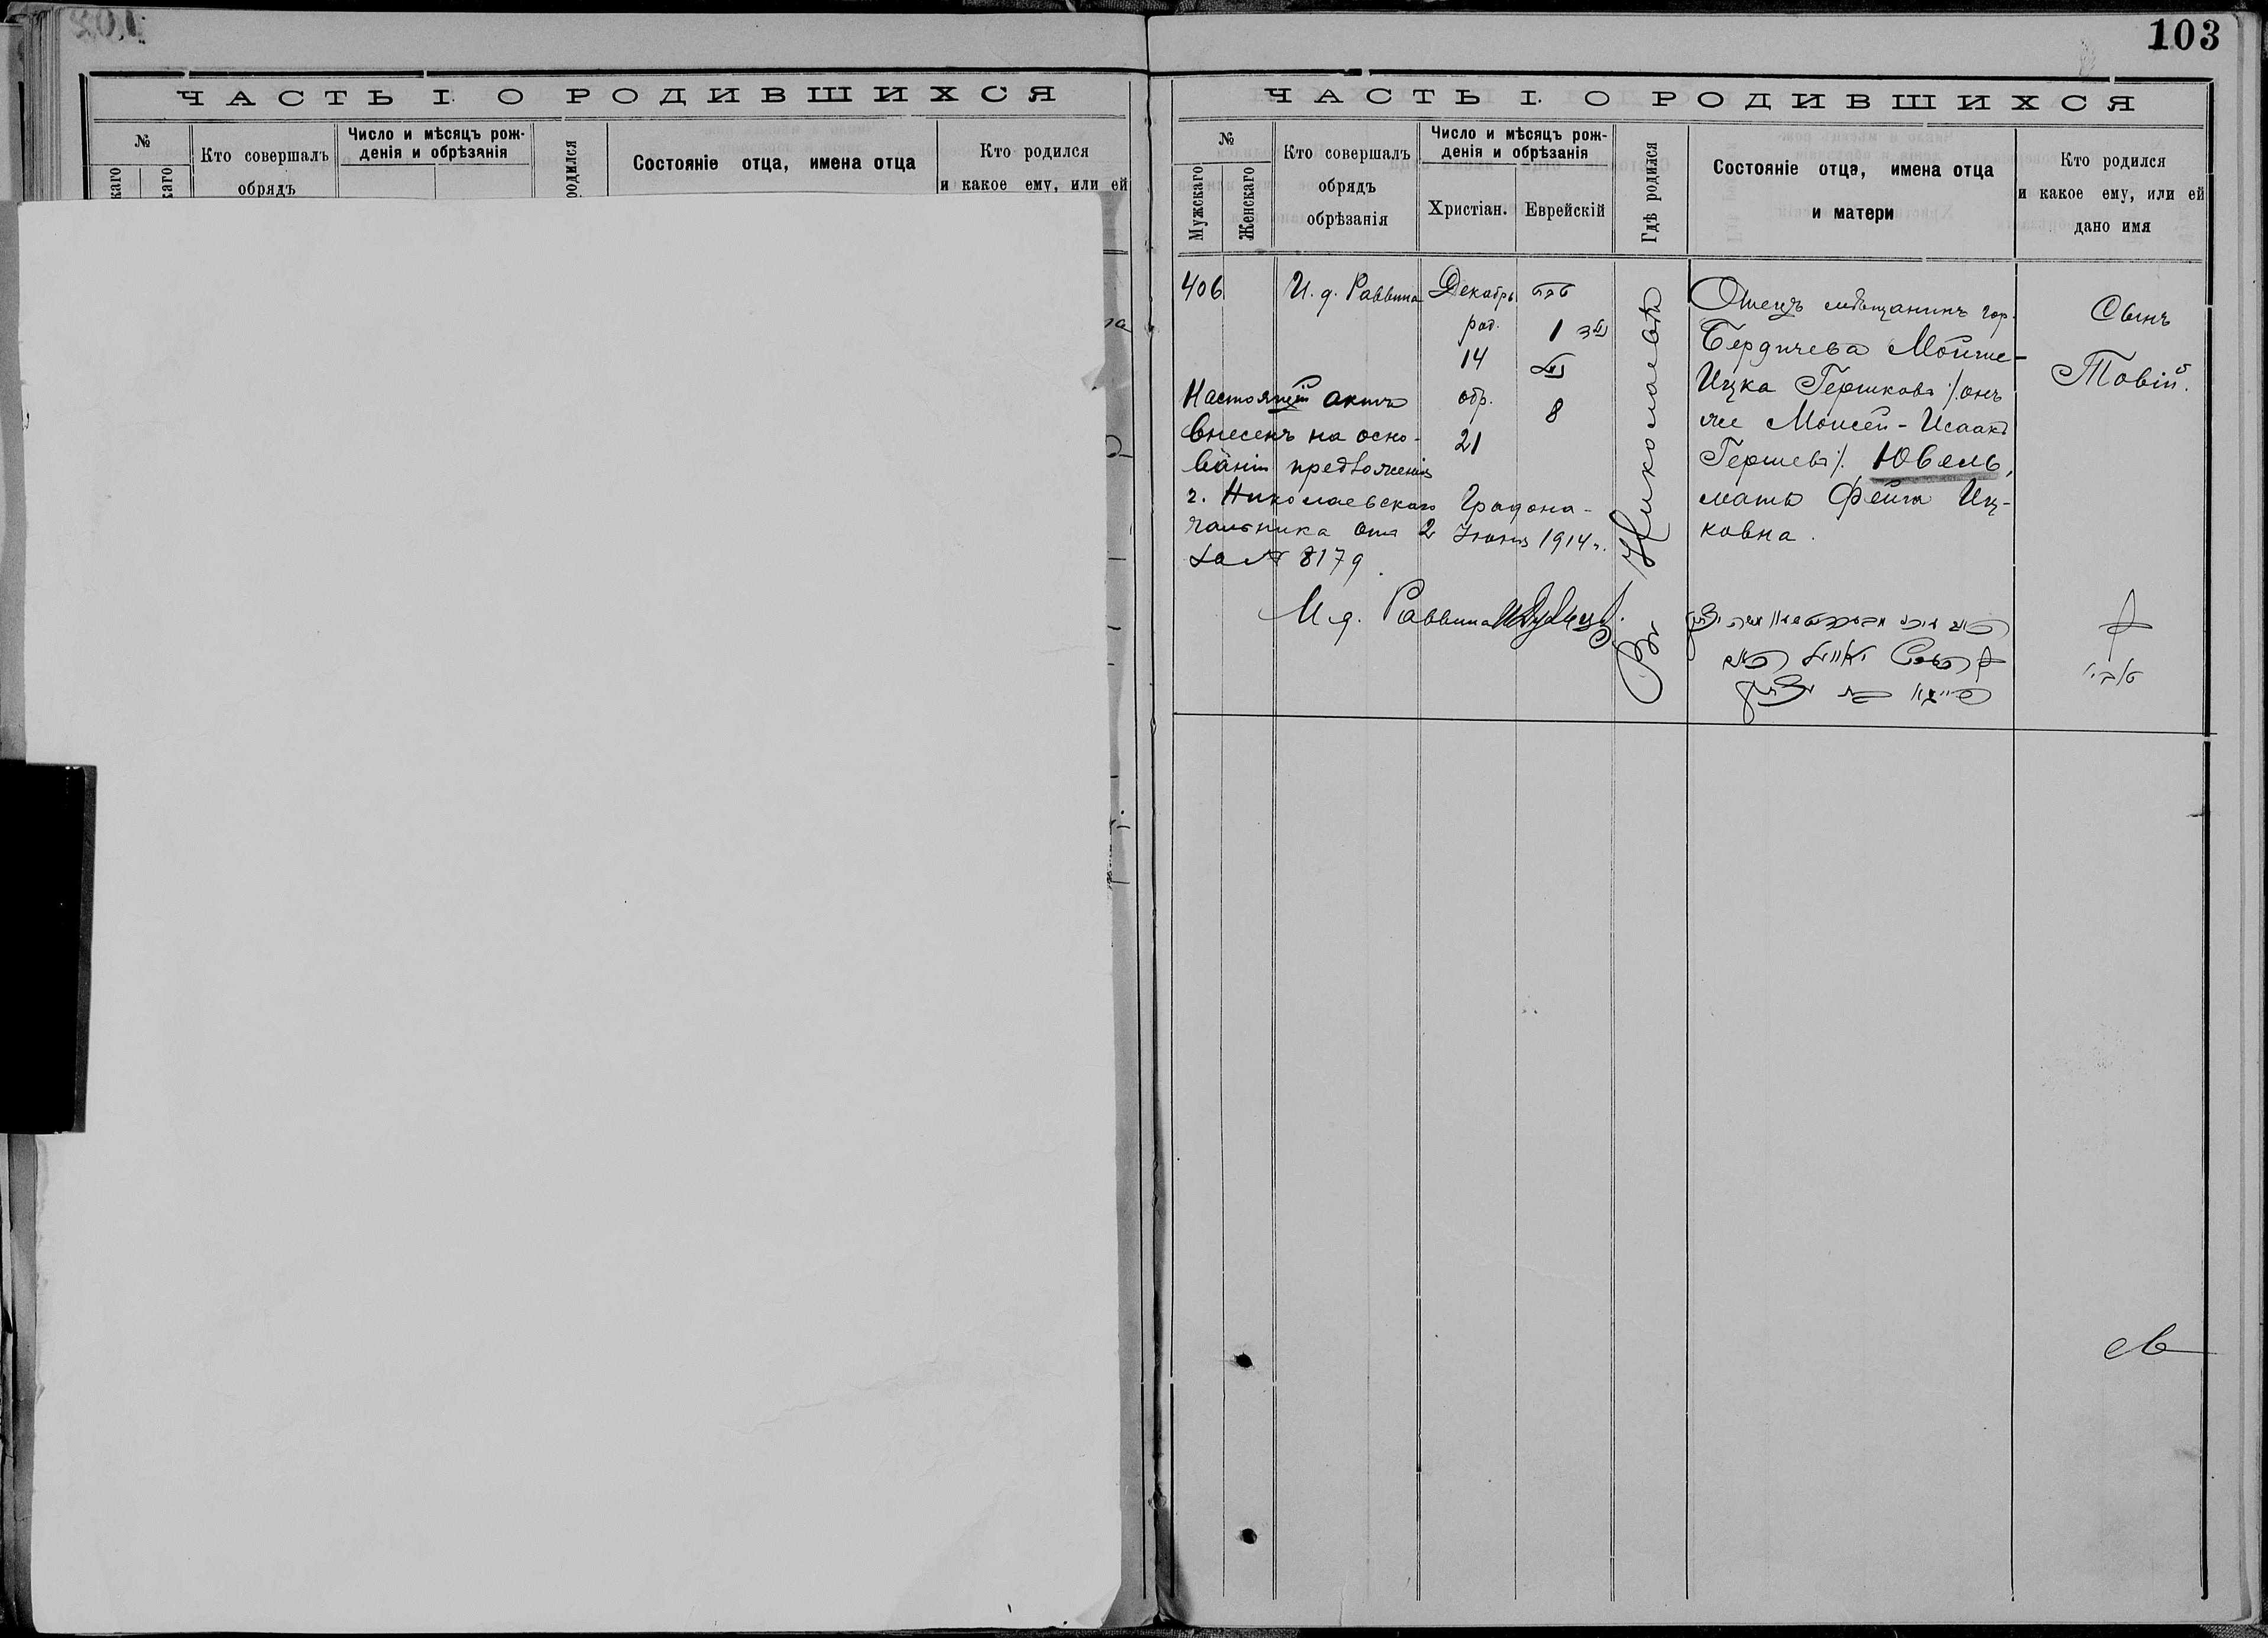 103
ЧАСТЬ I. О РОДИВШИХСЯ
№
Кто совершалъ
обрядъ
Число и мѣсяцъ рож-
денія и обрѣзанія
родился
Состояніе отца, имена отца
Кто родился
и какое ему, или ей
ЧАСТЬ I. О РОДИВШИХСЯ
№
Мужскаго
Женскаго
Кто совершалъ
обрядъ
обрѣзанія
Число и мѣсяцъ рож-
денія и обрѣзанія
Христіан.
Еврейскій
Гдѣ родился
Состояніе отца, имена отца
и матери
Кто родился
и какое ему, или ей
дано имя
406
И. д. Раввина
Декабрь
род.
14
обр.
21
טבת
1
8
Въ Николаевѣ
Отецъ мѣщанинъ гор.
Бердичева Мойше-
Ицка Гершковъ /онъ
же Моисей-Исаакъ
Гершевъ/. Ювель,
мать Фейга Иц-
ковна.
Сынъ
Товій.
Настоящій актъ
внесенъ на осно-
ваніи предложенія
г. Николаевскаго Градона-
чальника отъ 2 Іюня 1914 г.
за № 8179.
И. д. Раввина